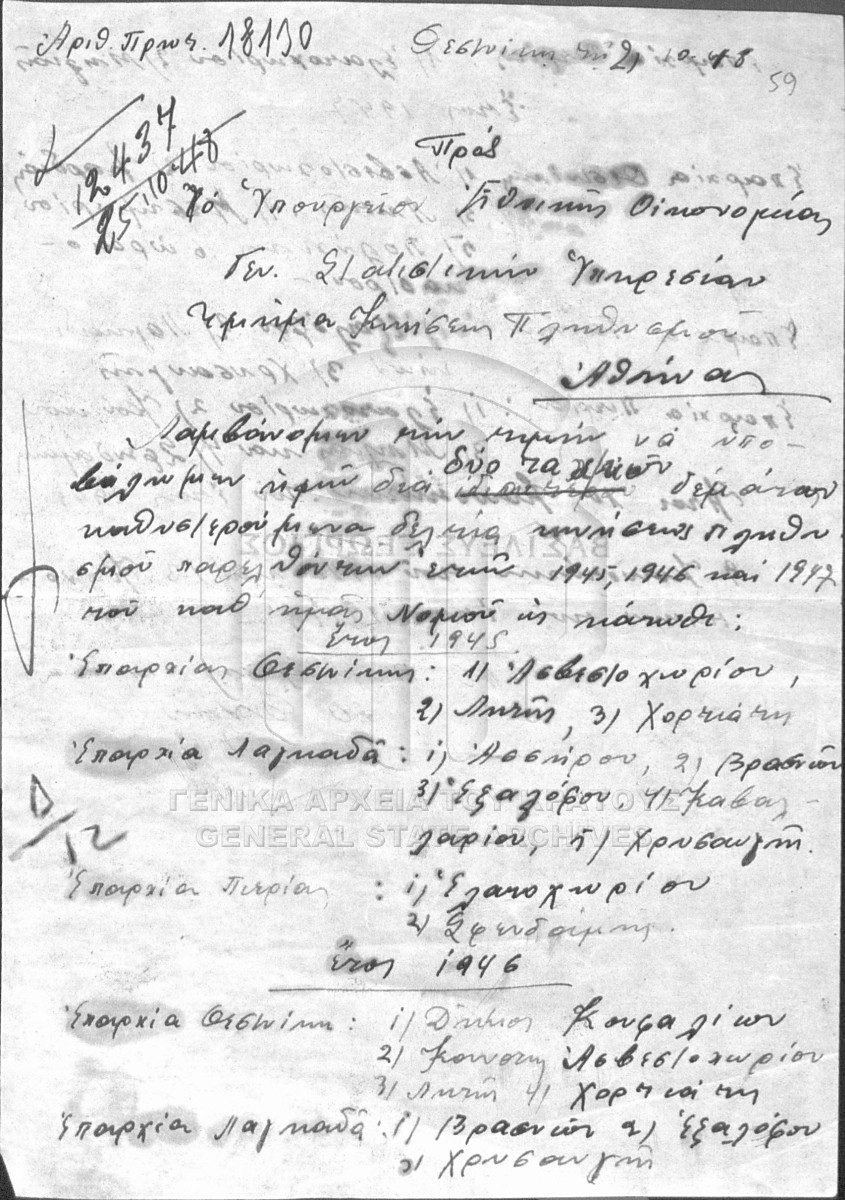 Ἀριθ. Πρωτ. 18130
Θεσ/νίκη τῇ 21 10 48
59
12437
25 10 48
Πρὸς
Τό Ὑπουργεῖον Ἐθνικῆς Οἰκονομίας
Γεν. Στατιστικὴν Ὑπηρεσίαν
Τμῆμα Κινήσεως Πληθυσμοῦ
Ἀθήνας
Λαμβάνομεν τὴν τιμὴν νὰ ὑπο-
βάλωμεν ὑμῖν διὰ δύο ταχ/κῶν δεμάτων
καθυστερούμενα δελτία κινήσεως πληθυ
σμοῦ παρελθόντων ἐτῶν 1945, 1946 καὶ 1947
τοῦ καθ' ἡμᾶς Νομοῦ ὡς κάτωθι:
Ἔτος 1945
Ἐπαρχίας Θεσ/νίκης: 1) Ἀσβεστοχωρίου,
2) Λητῆς, 3) Χορτιάτη
Ἐπαρχία Λαγκαδᾶ: 1) Ἀσσήρου, 2) Βρασνῶν
3) Ἐξαλόφου, 4) Καβαλ-
λαρίου, 5) Χρυσαυγῆς.
Ἐπαρχία Πιερίας: 1) Ἐλατοχωρίου
2) Σφενδάμης.
Ἔτος 1946
Ἐπαρχία Θεσ/νίκη: 1) Δῆμος Κουφαλίων
2) Κοινότης Ἀσβεστοχωρίου
3) Λητῆς 4) Χορτιάτη
Ἐπαρχία Λαγκαδᾶ: 1) Βρασνῶν 2) Ἐξαλόφου
3) Χρυσαυγῆς
Δ/12
ΓΕΝΙΚΑ ΑΡΧΕΙΑ ΤΟΥ ΚΡΑΤΟΥΣ
GENERAL STATE ARCHIVES